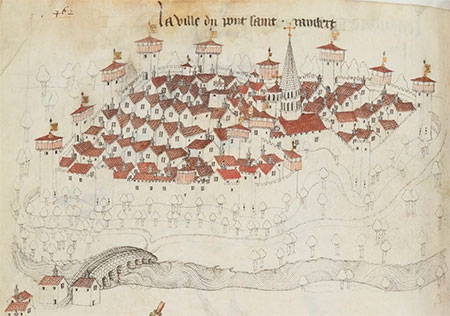 462
la ville du pont saint rambert